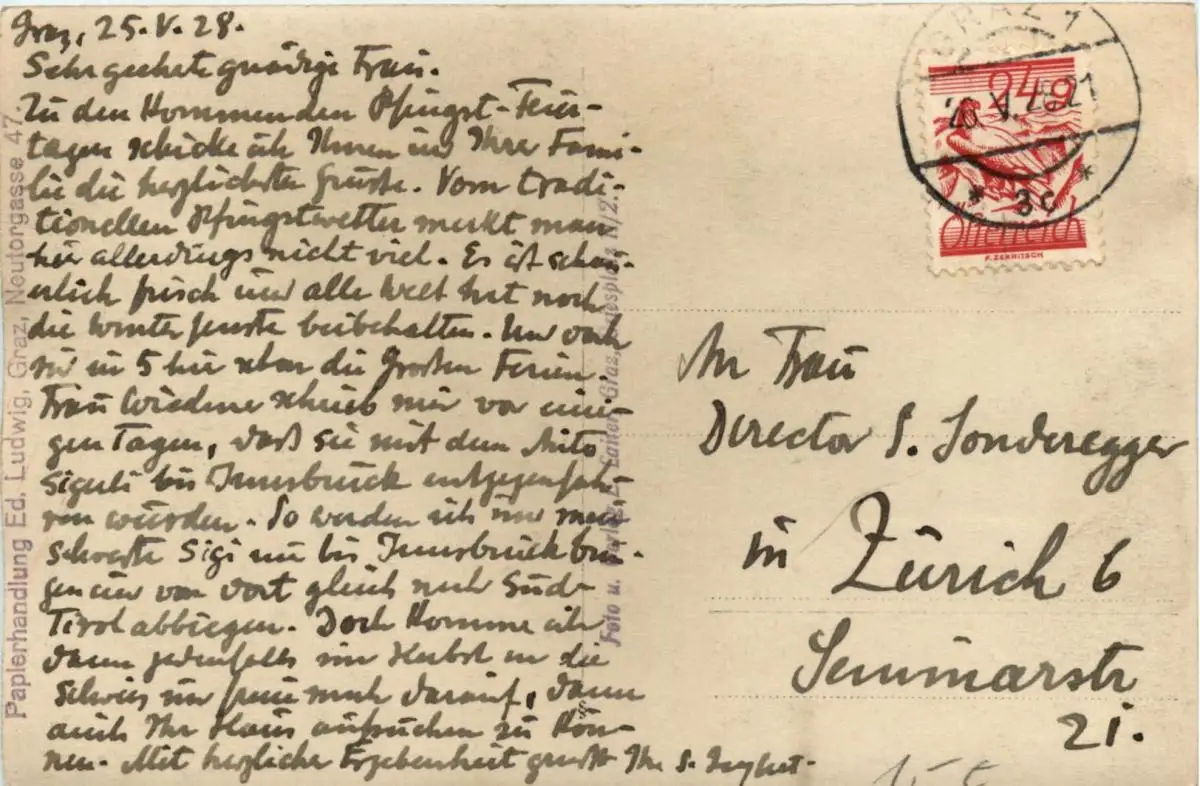 Graz, 25. V. 28.
Sehr geehrte gnädige Frau.
Zu den kommenden Pfingst-Feier-
tagen schicke ich Ihnen und Ihrer Fami-
lie die herzlichsten Grüsse. Vom tradi-
tionellen Pfingstwetter merkt man
hier allerdings nicht viel. Es ist
frisch und alle Welt hat noch
die beibehalten. Und doch
sind in 5 die Großen Ferien.
Frau schrieb mir vor eini-
gen Tagen, daß sie mit dem Auto
bis Innsbruck entgegenfah-
ren würden. So werden ich und meine
Schwester Sigi nur bis Innsbruck brin-
gen und von dort gleich nach Süd-
Tirol abbiegen. Doch komme ich
dann jedenfalls im Herbst in die
Schweiz und freue mich darauf, dann
auch Ihr Haus aufsuchen zu kön-
nen. Mit herzlicher Ergebenheit grüsst Ihr S.
Papierhandlung Ed. Ludwig, Graz, Neutorgasse 47.
Foto u. Verlag
GRAZ 1
V. 28 21
* 3c *
24 g
Österreich
F. ZERRITSCH
An Frau
Director S. Sonderegger
in Zürich 6
Seminarstr
21.